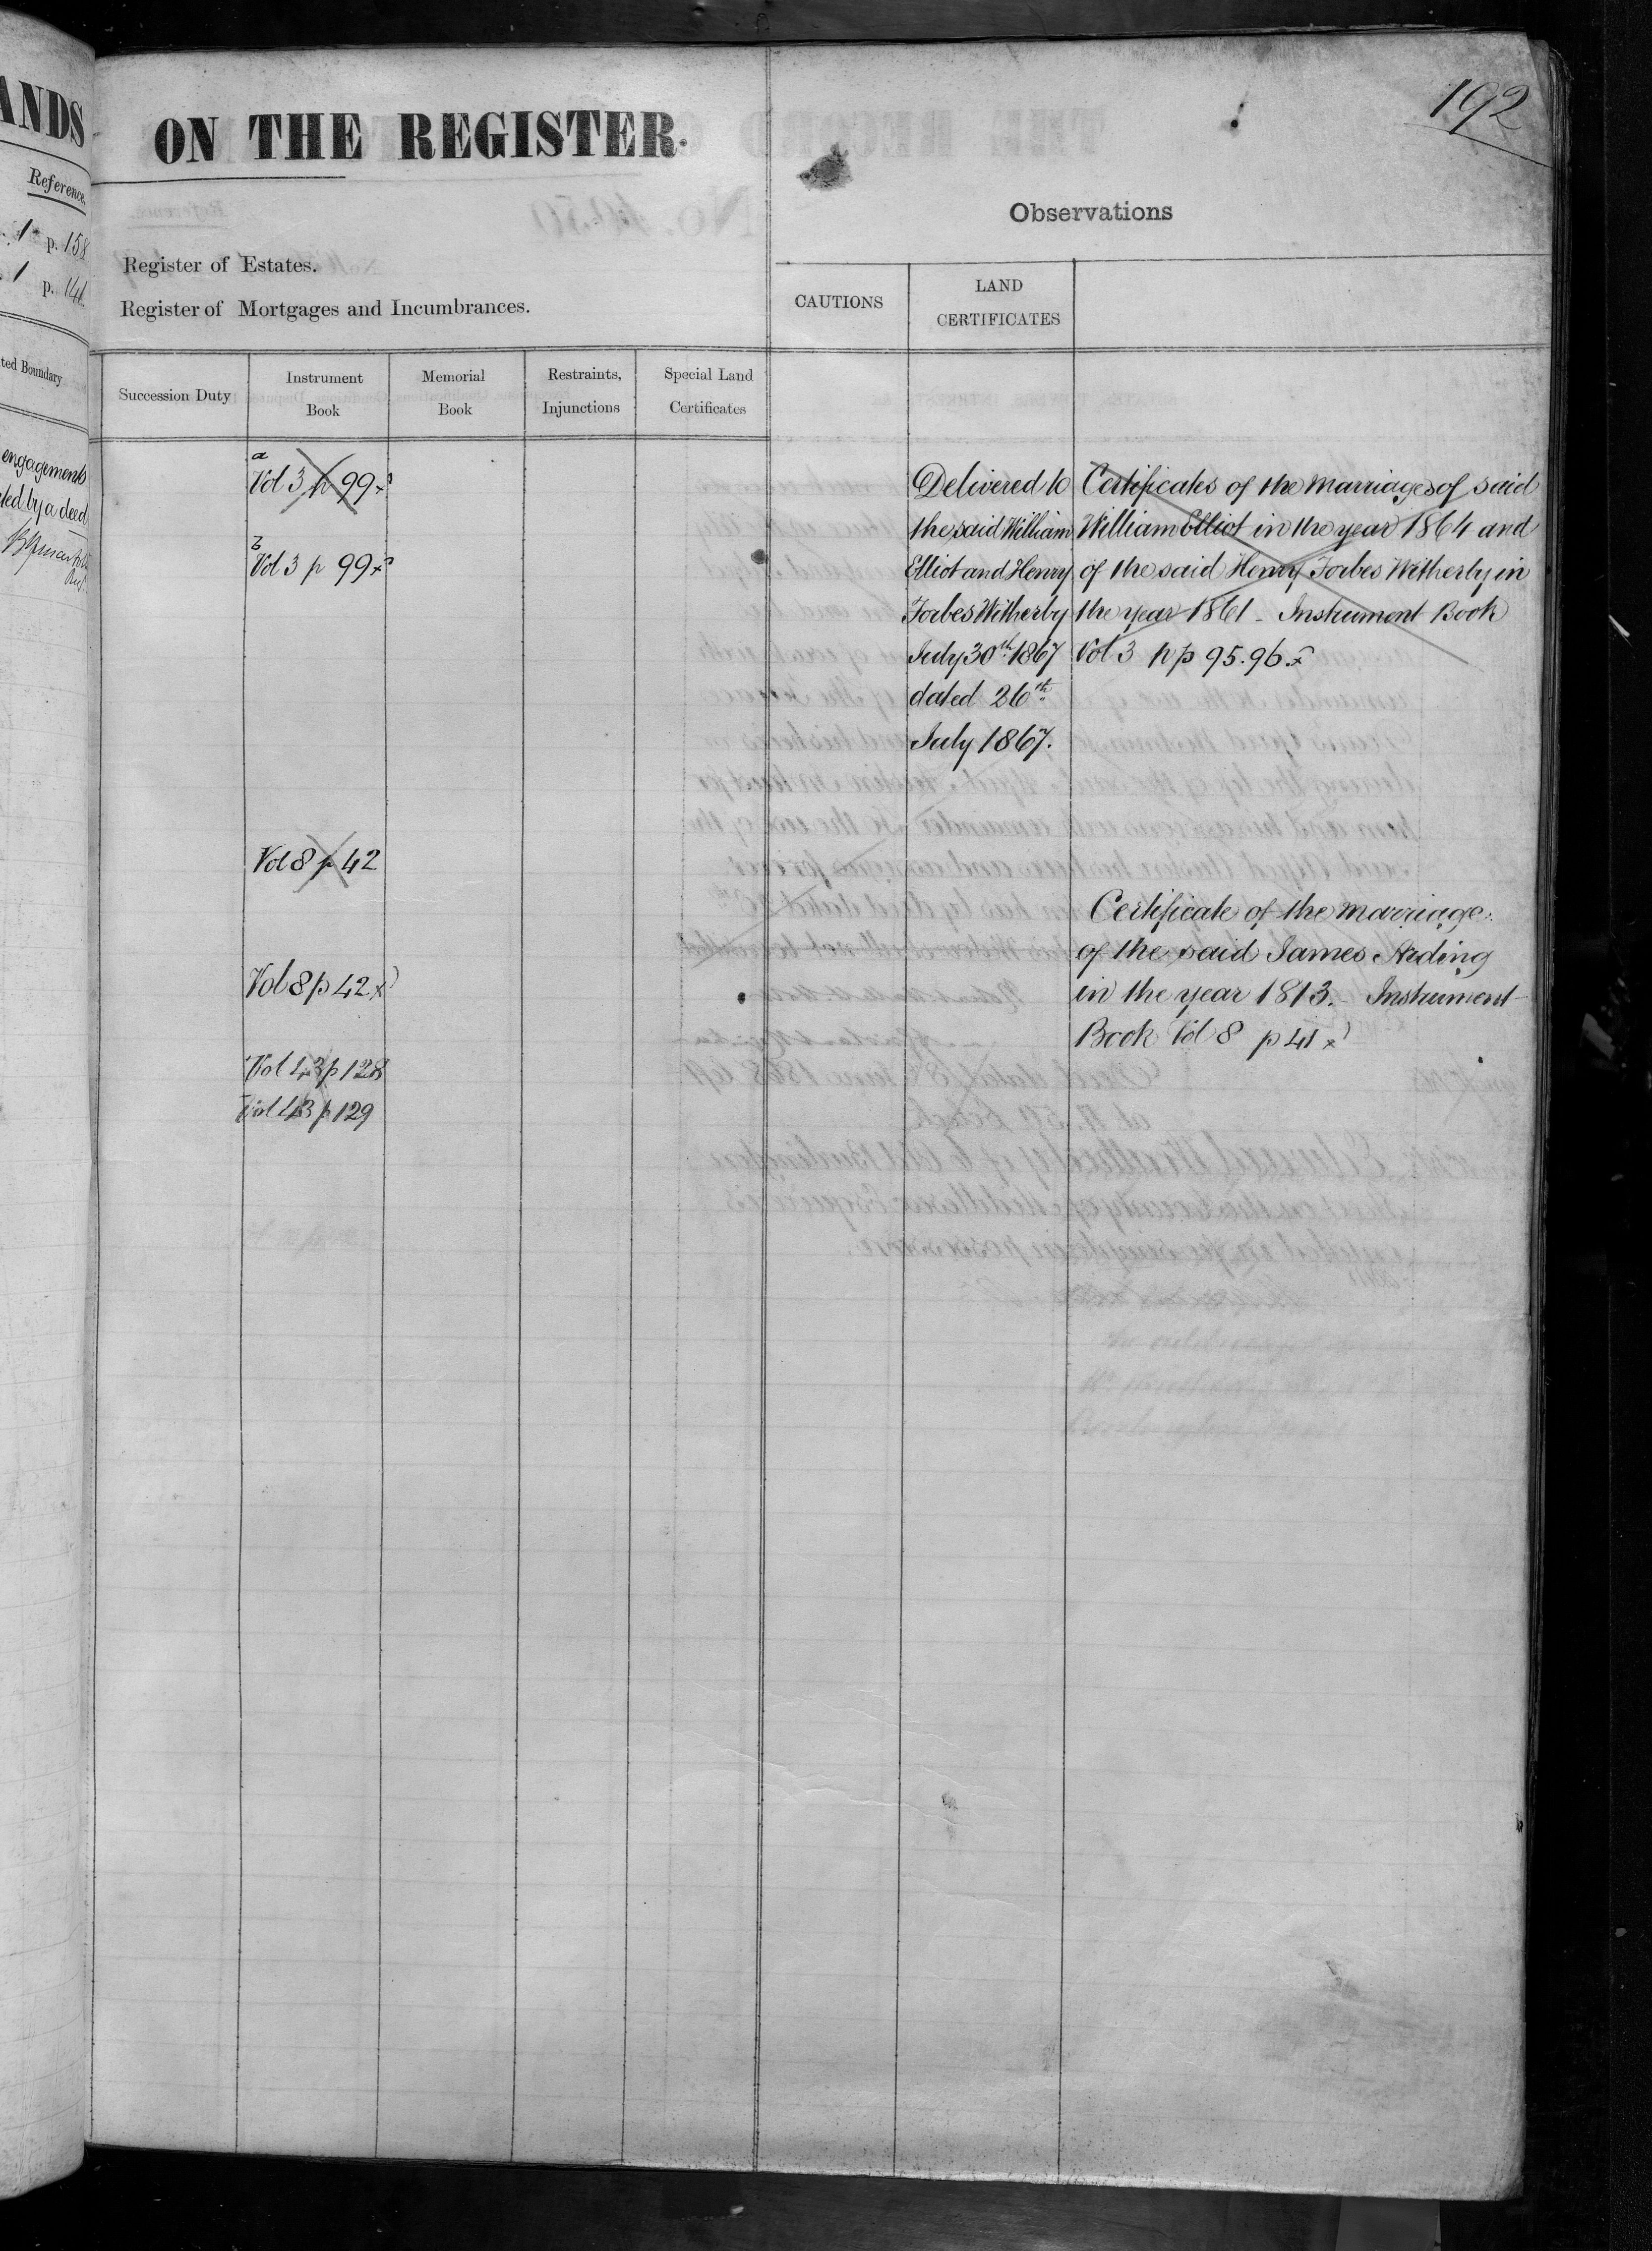 192
ANDS
ON THE REGISTER.
Reference.
1 p. 158
1 p. 141
Observations
Register of Estates.
Register of Mortgages and Incumbrances.
CAUTIONS
LAND
CERTIFICATES
ted Boundary
Succession Duty
Instrument
Book
Memorial
Book
Restraints,
Injunctions
Special Land
Certificates
engagements
ted by a deed
a
Vol 3 p 99
b
Vol 3 p 99
Vol 8 p 42
Vol 8 p 42
Vol 43 p 128
Vol 43 p 129
Delivered to
the said William
Elliot and Henry
Forbes Witherby
July 30th 1867
dated 26th
July 1867.
Certificates of the marriages of said
William Elliot in the year 1864 and
of the said Henry Forbes Witherby in
the year 1861 - Instrument Book
Vol 3 pp 95.96.
Certificate of the marriage
of the said James Arding
in the year 1813. - Instrument
Book Vol 8 p 41